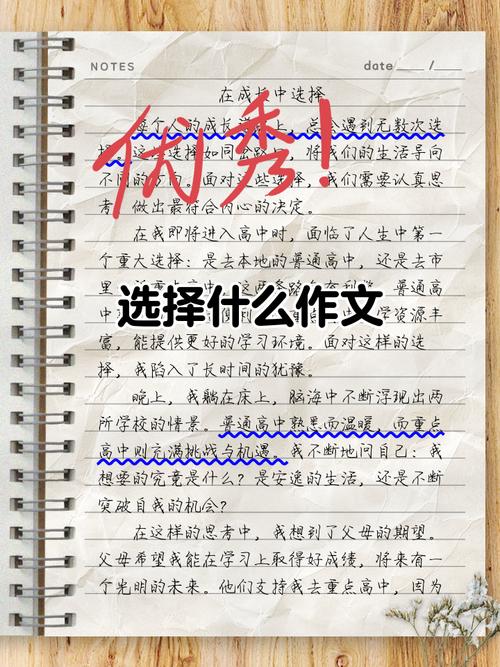 NOTES
date / 
在成长中选择
优秀!
每个人的成长道上，总会遇到无数次选
择。这些选择如同岔路口，将我们的生活导向
不同的方向。面对这些选择，我们需要认真思
考，做出最符合内心的决定。
在我即将进入高中时，面临了人生中第一
个重大选择：是去本地的普通高中，还是去市
里 普通高
选择什么作文
中 学资源丰
富，能提供更好的学习环境。面对这样的选
择，我陷入了长时间的犹豫。
晚上，我躺在床上，脑海中不断浮现出两
所学校的情景。普通高中熟悉而温暖，而重点
高中则充满挑战与机遇。我不断地问自己：我
想要的究竟是什么？是安逸的生活，还是不断
突破自我的机会？
在这样的思考中，我想到了父母的期望。
父母希望我能在学习上取得好成绩，将来有一
个光明的未来。他们支持我去重点高中，因为